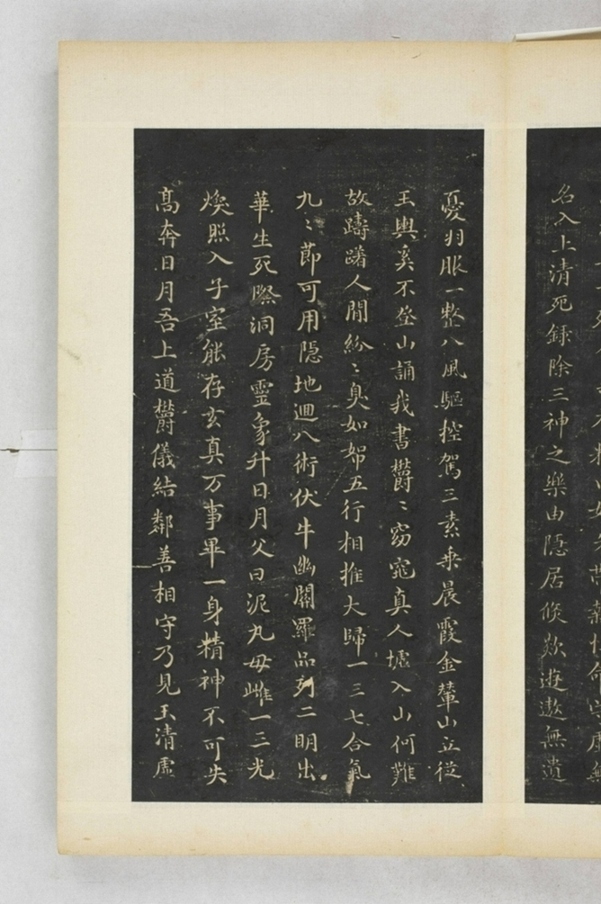 名入上清死錄除三神之樂由隱居倏欻遊遨無遺
憂羽服一整八風驅控駕三素乘晨霞金輦山立從
玉輿奚不登山誦我書欝〻窈窕真人墟入山何難
故躊躇人間紛〻臭如帤五行相推大歸一三七合氣
九〻節可用隱地迴八術伏牛幽闕羅品列二明出
華生死際洞房靈象升日月父曰泥丸母雌一三光
煥照入子室能存玄真万事畢一身精神不可失
髙奔日月吾上道欝儀結鄰善相守乃見玉清虛